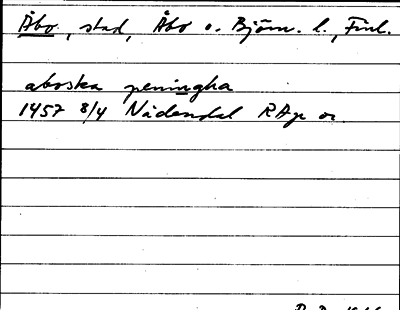 Åbo, stad, Åbo o. Björn. l., Finl.
aboska peningha
1457 8/4 Nådendal RAp or.